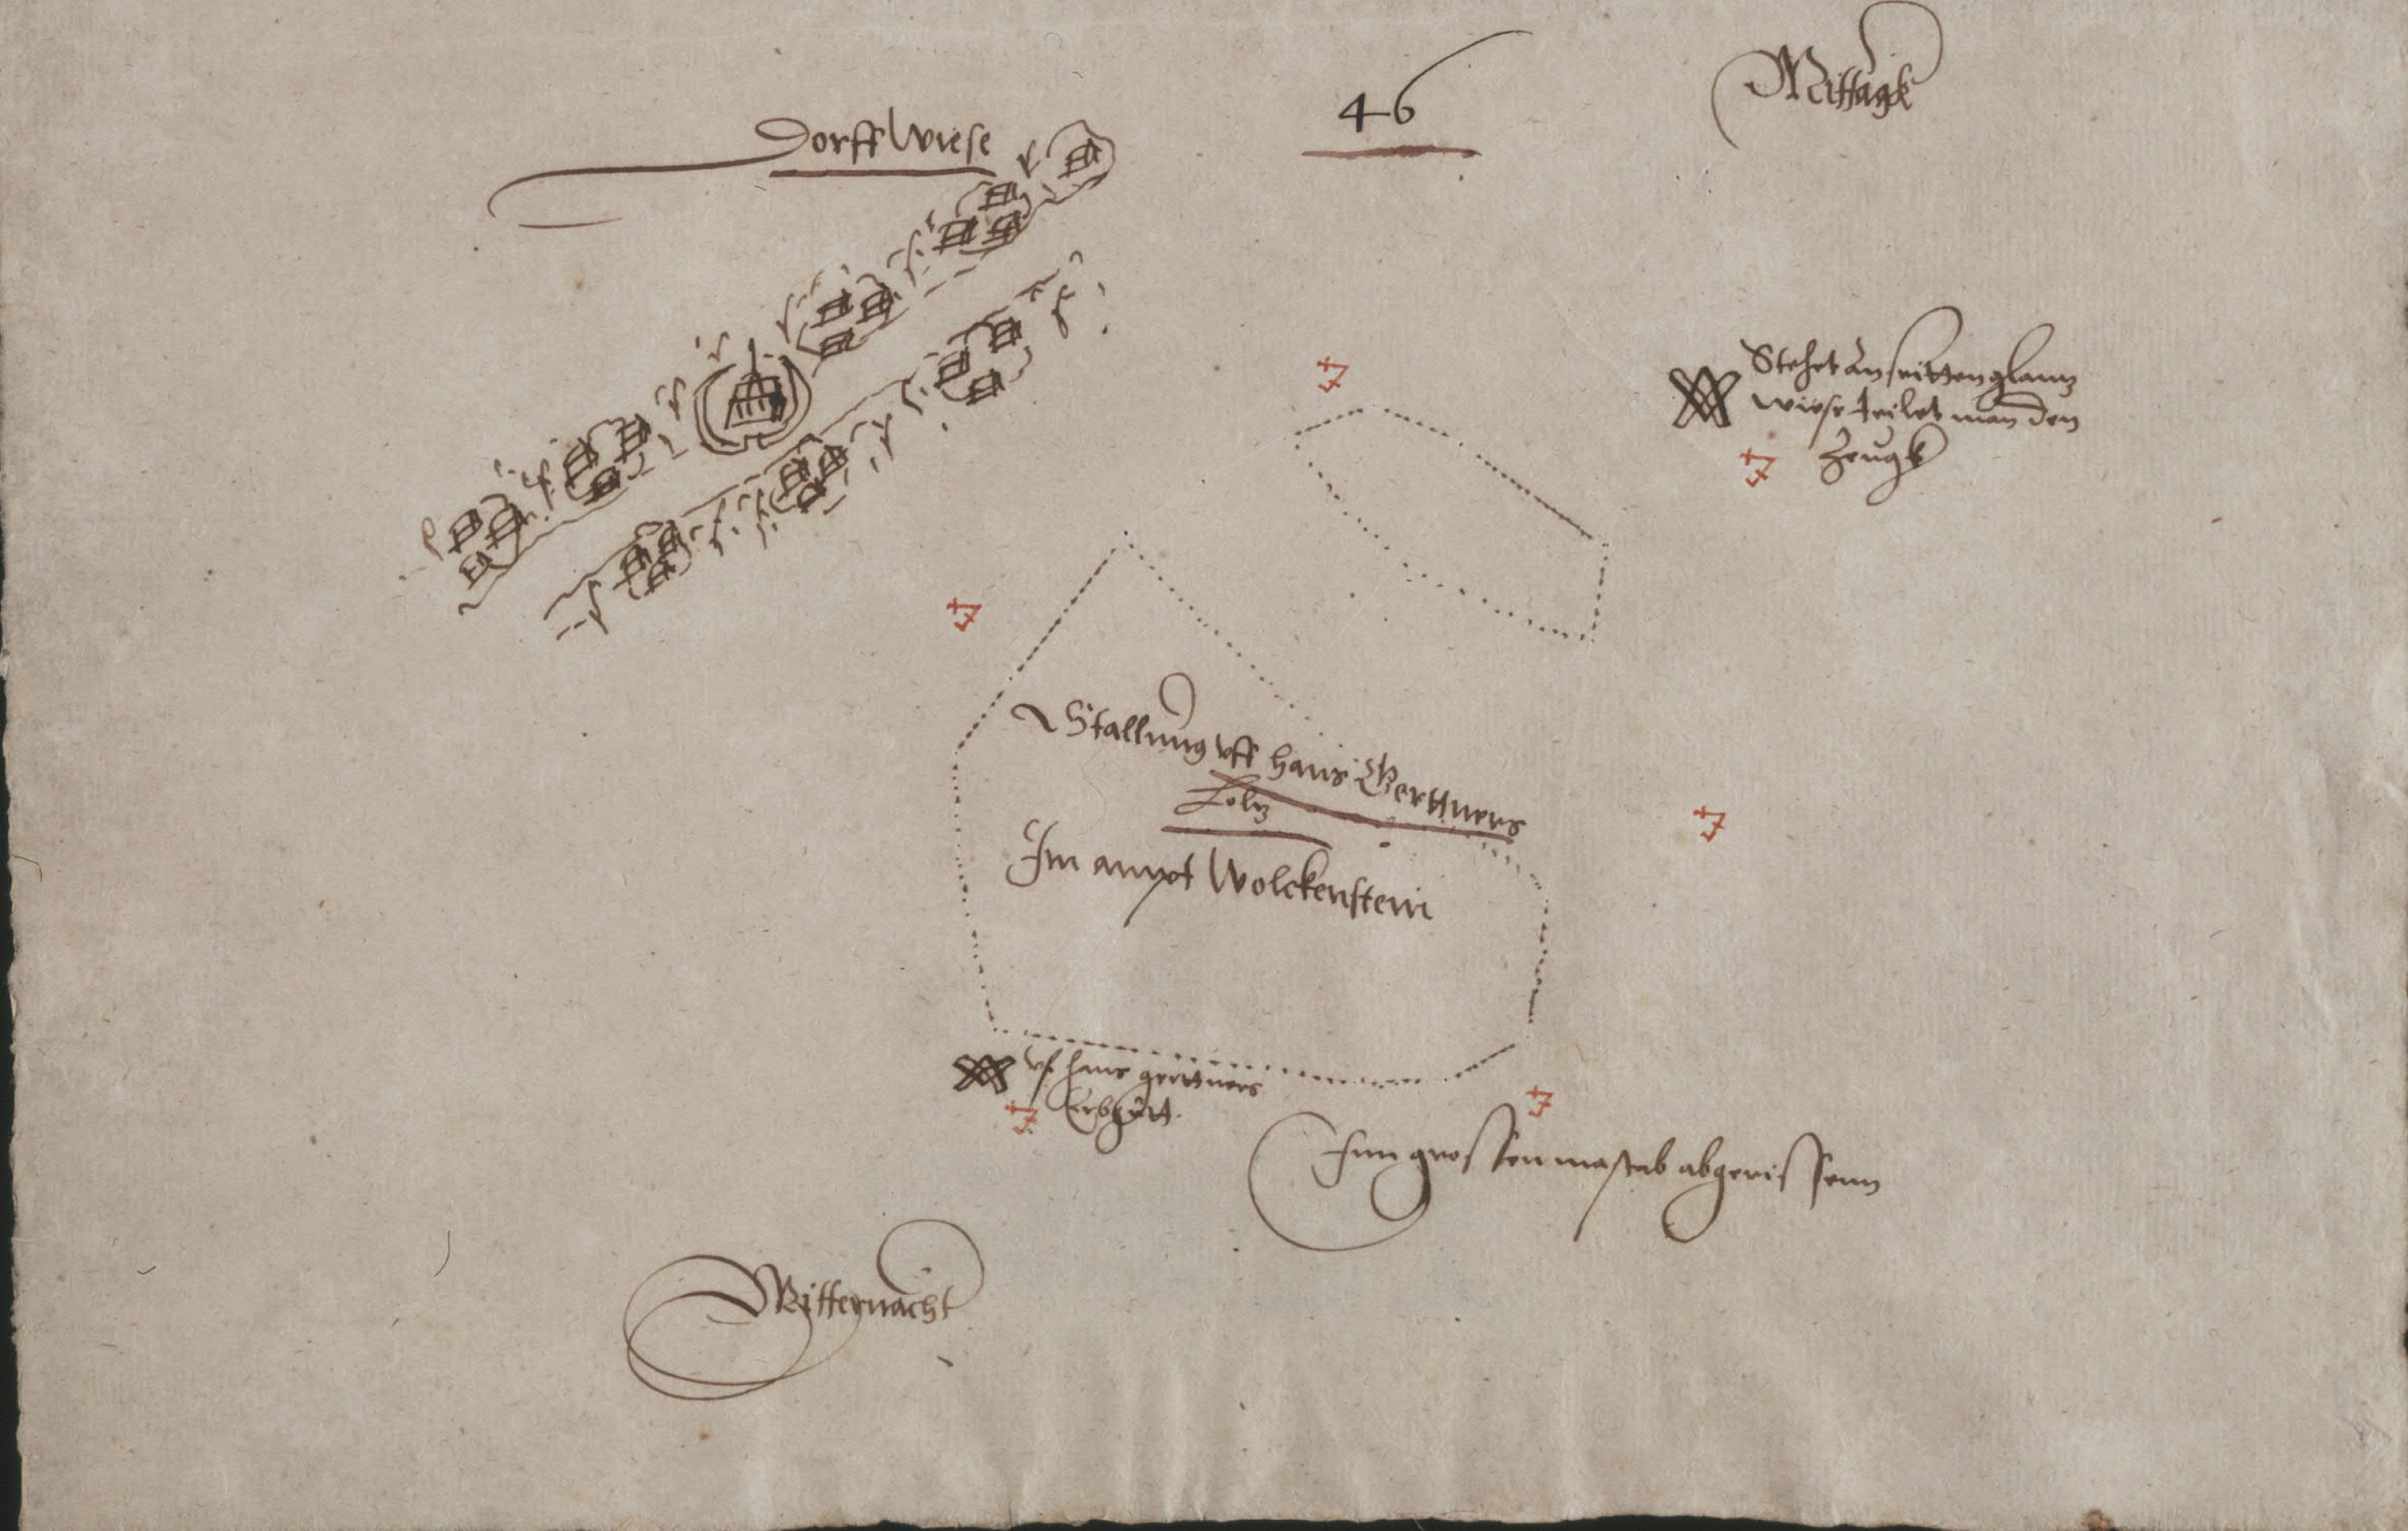 46
Mittagk
Dorff Wiese
Stehet an
wiese teilet man den
Zeugk
Stallung vff hans Gerttners
holtz
Im ampt Wolckenstein
vf hans gerttners
Erbgutt.
Inn grossen mastab abgerissenn
Mitternacht